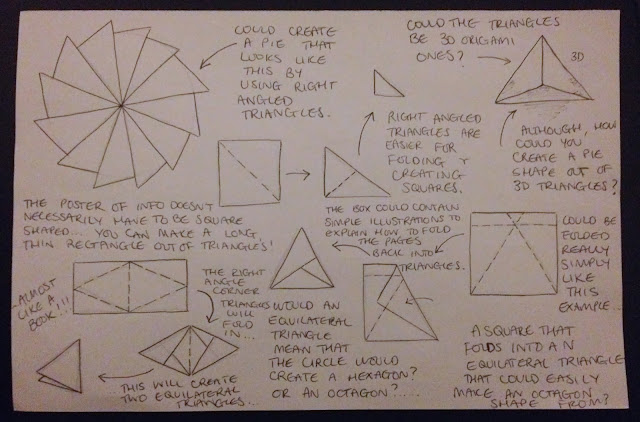 COULD CREATE
A PIE THAT
LOOKS LIKE
THIS BY
USING RIGHT
ANGLED
TRIANGLES.
COULD THE TRIANGLES
BE 3D ORIGAMI
ONES?
3D
RIGHT ANGLED
TRIANGLES ARE
EASIER FOR
FOLDING &
CREATING
SQUARES.
ALTHOUGH, HOW
COULD YOU
CREATE A PIE
SHAPE OUT OF
3D TRIANGLES?
THE POSTER OF INFO DOESN'T
NECESSARILY HAVE TO BE SQUARE
SHAPED... YOU CAN MAKE A LONG,
THIN RECTANGLE OUT OF TRIANGLE'S!
THE BOX COULD CONTAIN
SIMPLE ILLUSTRATIONS TO
EXPLAIN HOW TO FOLD
THE PAGES
BACK INTO
TRIANGLES.
COULD BE
FOLDED
REALLY
SIMPLY
LIKE
THIS
EXAMPLE...
ALMOST
LIKE A
BOOK!!!
THE RIGHT
ANGLE
CORNER
TRIANGLES
WILL
FOLD
IN...
THIS WILL CREATE
TWO EQUILATERAL
TRIANGLES...
WOULD AN
EQUILATERAL
TRIANGLE
MEAN THAT
THE CIRCLE WOULD
CREATE A HEXAGON?
OR AN OCTAGON?.....
A SQUARE THAT
FOLDS INTO AN
EQUILATERAL TRIANGLE
THAT COULD EASILY
MAKE AN OCTAGON
SHAPE FROM?